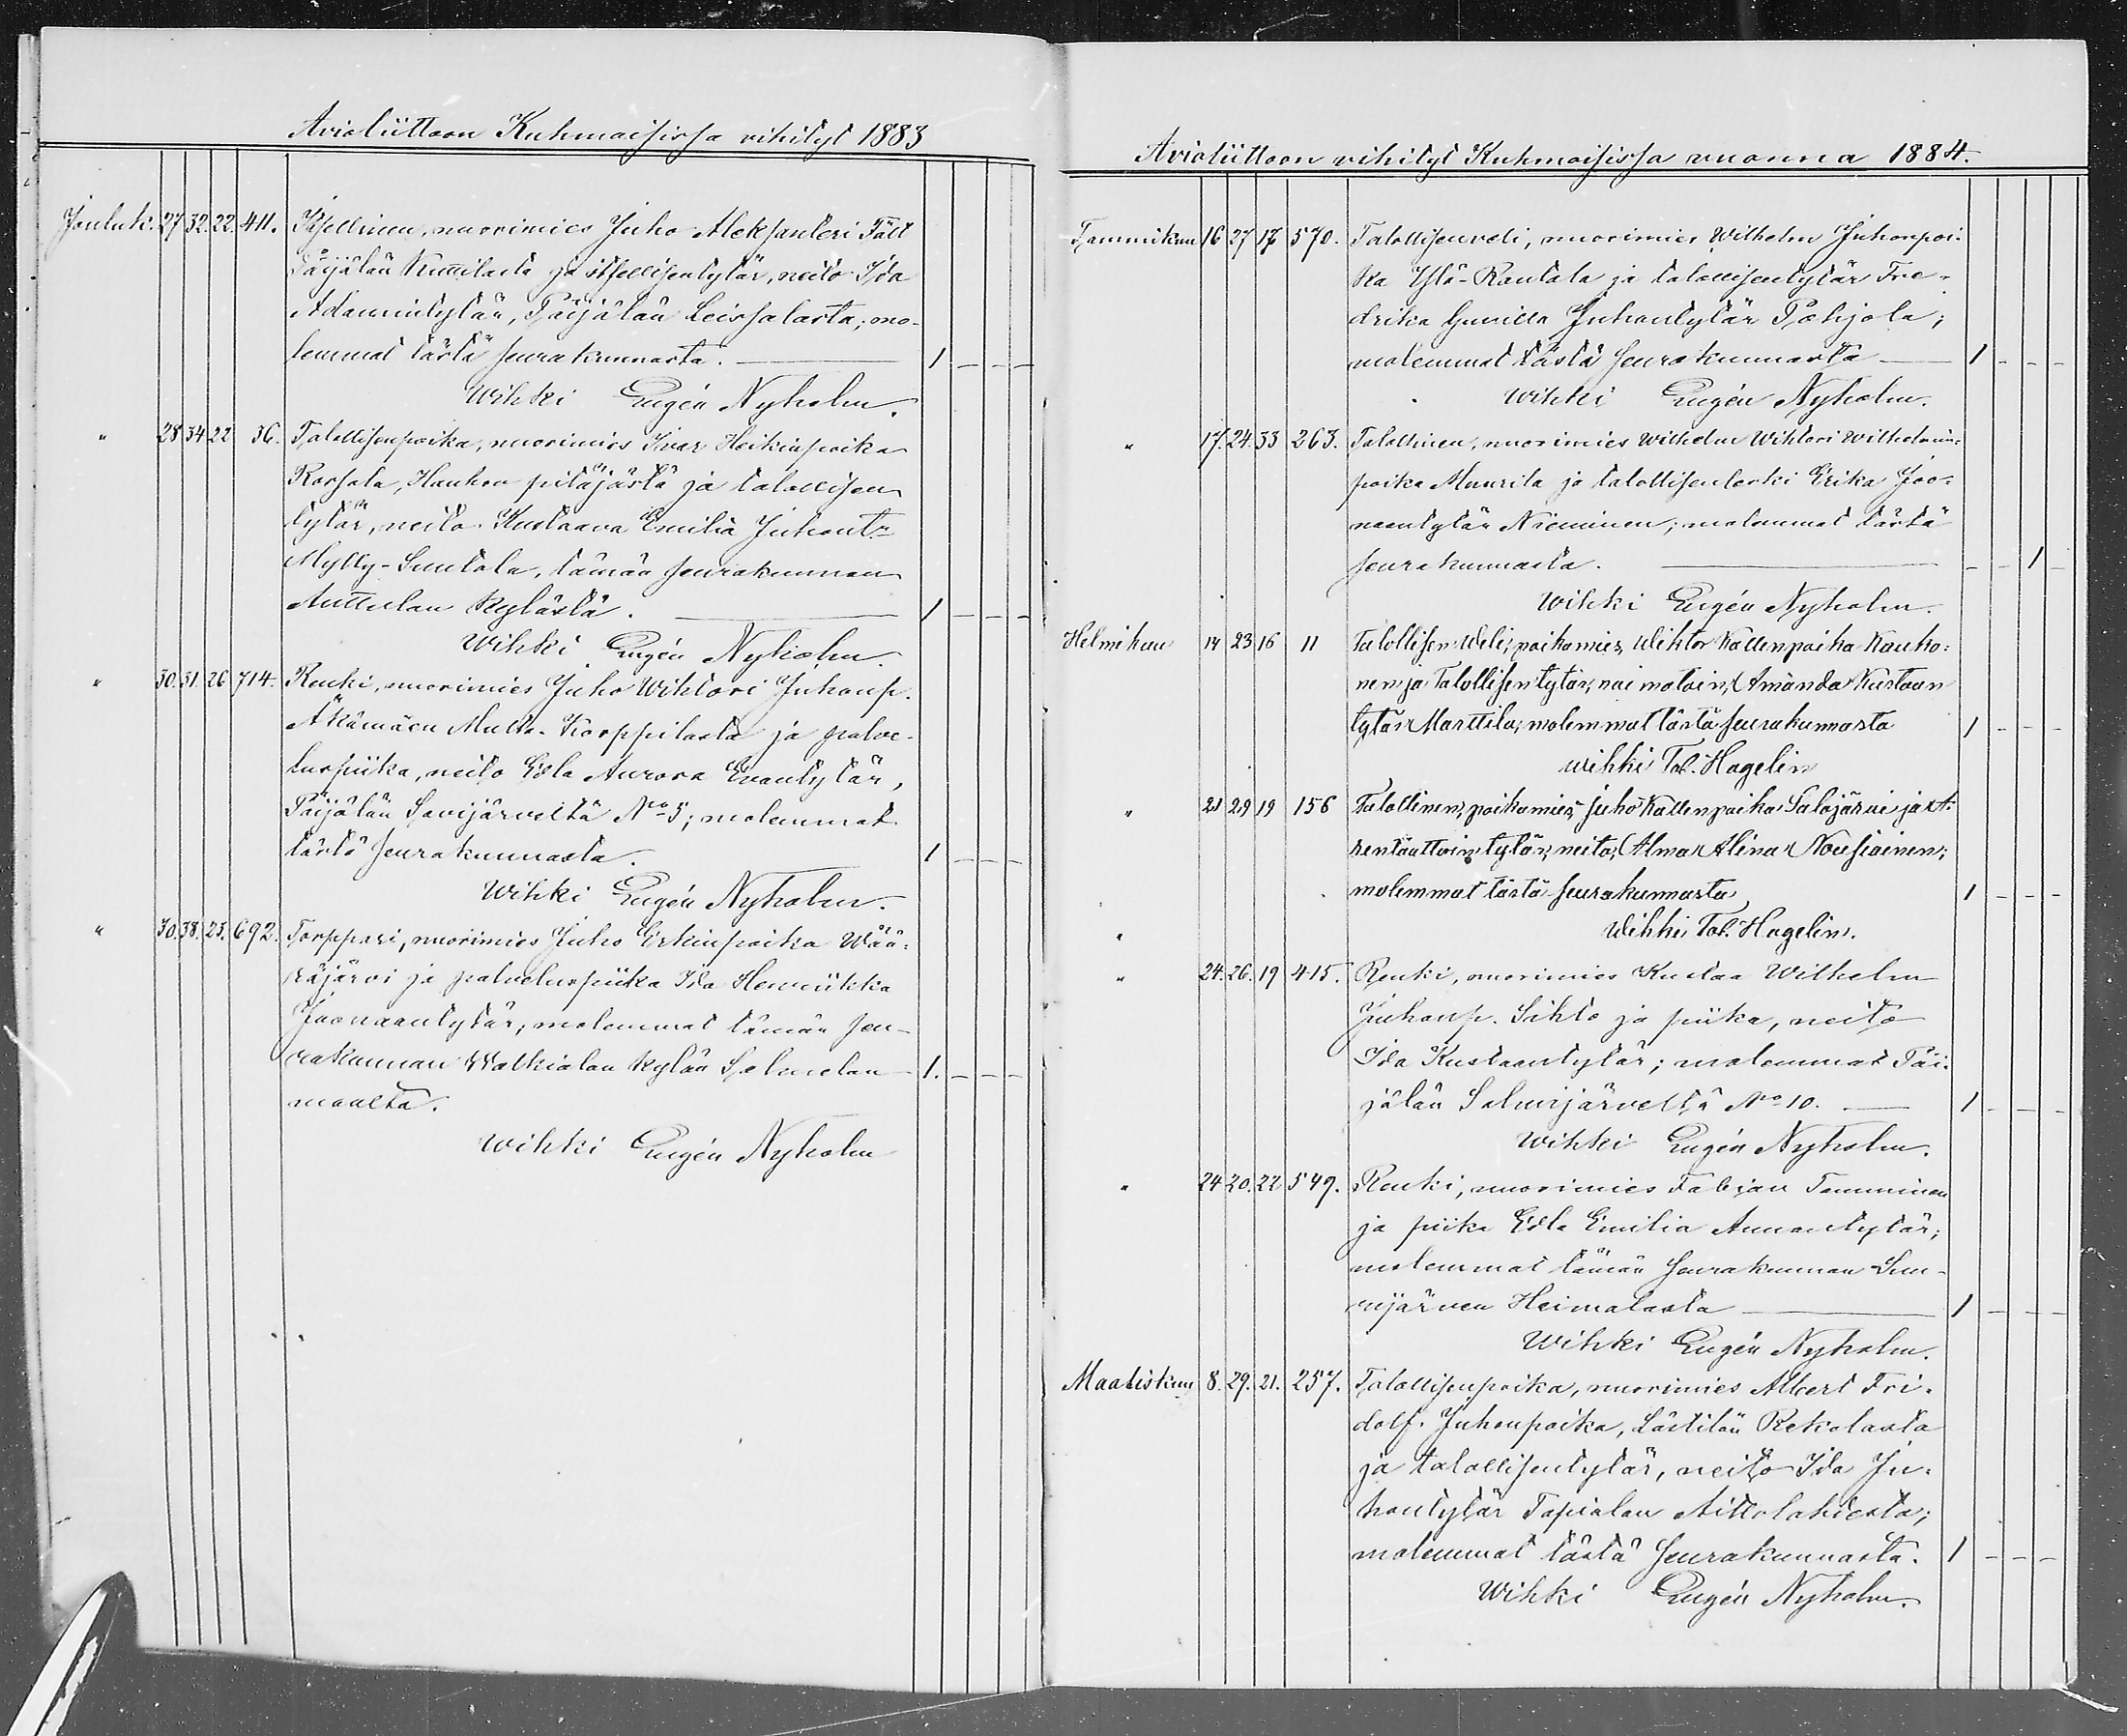 Avioliittoon Kuhmoisissa vihityt 1883
Jouluk. 27 32. 22. 411. Itsellinen, nuorimies Juho Aleksanteri Fält
Päijälän Knuutilasta ja itsellisentytär, neito Ida
Adamintytär, Päijälän Leissalasta; mo-
lemmat tästä seurakunnasta. 1 - - -
Wihki Eugén Nyholm.
" 28 34 22 36. Talollisenpoika, nuorimies Ivar Heikinpoika
Rossala, Hauhon pitäjästä ja talollisen
tytär, neito Kustaava Emilia Juhont:r
Mylly-Suutala, tämän seurakunnan
Auttulan kylästä. 1 - - -
Wihki Eugén Nyholm.
" 30. 31. 26 714. Renki, nuorimies Juho Wihtori Juhonp.
Äkämäen Multa-Korppilasta ja palve-
luspiika, neito Edla Aurora Evantytär,
Päijälän Savijärveltä No 5; molemmat
tästä seurakunnasta. 1 - - -
Wihki Eugén Nyholm.
" 30. 38. 23. 692. Torppari, nuorimies Juho Erkinpoika Wää-
räjärvi ja palveluspiika Ida Henriikka
Joonaantytär, molemmat tämän seu-
rakunnan Walkialan kylän Salmelan 1. - - -
maalta.
Wihki Eugén Nyholm
Avioliittoon vihityt Kuhmoisissa vuonna 1884.
Tammikuu 16 27 17 570. Talollisenveli, nuorimies Wilhelm Juhonpoi-
ka Ylä-Rantala ja talollisentytär Fre-
drika Gunilla Juhontytär Pohjola;
molemmat tästä seurakunnasta 1 - - -
Wihki Eugén Nyholm.
" 17. 24. 33 263. Talollinen, nuorimies Wilhelm Wihtori Wilhelmin-
poika Muurila ja talollisenleski Erika Joo-
naantytär Nieminen; molemmat tästä
seurakunnasta. - - 1 -
Wihki Eugén Nyholm.
Helmikuu 14 23 16 11 Talollisen Weli, poikamies, Wihtor Kallenpoika Kauko-
nen ja Talollisen tytär, naimatoin, Amanda Kustaan
tytär Marttila; molemmat tästä seurakunnasta 1 - - -
wihki Tob. Hagelin
" 21 29 19 156 Talollinen, poikamies, Juho Kallenpoika Salojärvi ja A-
rentäuttoin tytär, neito, Alma Alina Nousiainen;
molemmat tästä seurakunnasta 1 - - -
" Wihki Tob. Hagelin.
" 24. 26. 19 415. Renki, nuorimies Kustaa Wilhelm
Juhonp. Sihto ja piika, neito
Ida Kustaantytär; molemmat Päi-
jälän Salmijärveltä No 10. 1 - - -
Wihki Eugén Nyholm.
" 24 20. 22 549. Renki, nuorimies Fabian Tamminen
ja piika Edla Emilia Annantytär;
molemmat tämän seurakunnan Suu-
rijärven Heimalasta 1 - - -
Wihki Eugén Nyholm.
Maaliskuu 8. 29. 21. 257. Talollisenpoika, nuorimies Albert Fri-
dolf Juhonpoika, Lästilän Rekolasta
ja talollisentytär, neito Ida Ju-
hontytär Tapialan Aittolahdesta;
molemmat tästä seurakunnasta. 1 - - -
Wihki Eugén Nyholm.